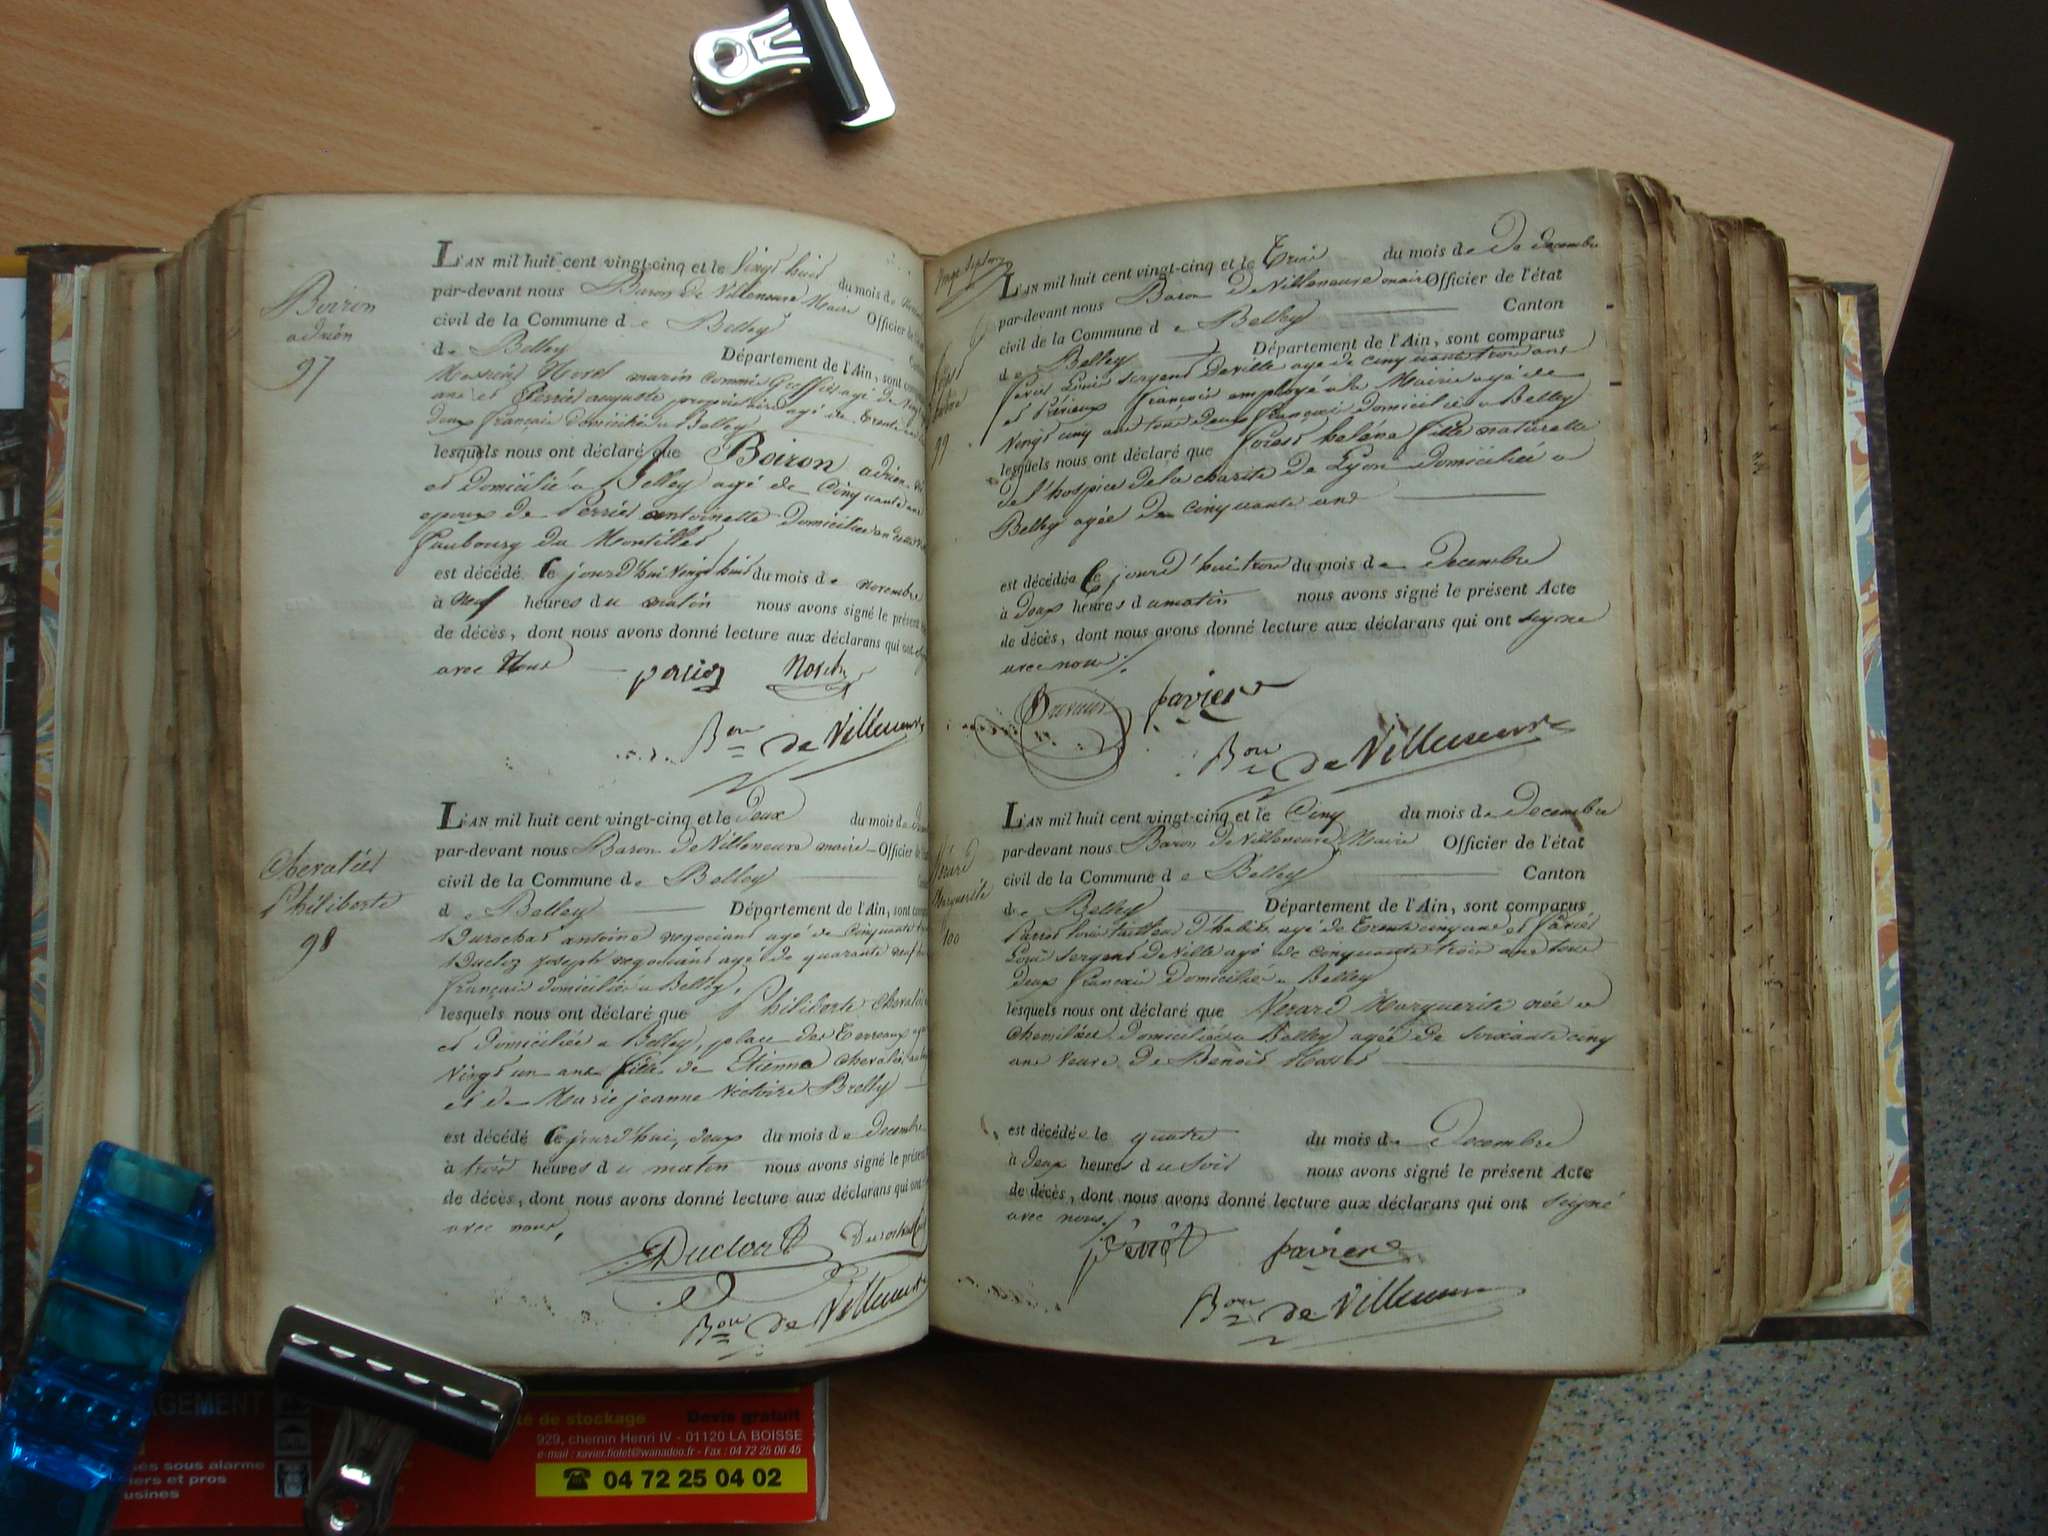 Boiron
adrien
97
L'AN mil huit cent vingt-cinq et le Vingt huit du mois de
par-devant nous Baron De Villeneuve Maire Officier de
civil de la Commune de Belley
de Belley Département de l'Ain, sont
marin commis Greffier agé de
ans et Perrier auguste propriétaire agé de Trente
Deux français Domiciliés a Belley
lesquels nous ont déclaré que Boiron adrien
et Domicilié a Belley agé de Cinquante ans
epoux de Perrier antoinette Domicilié au
Faubourg du
est décédé Ce jourd'hui Vingt huit du mois de novembre
à Neuf heures du matin nous avons signé le présent
de décès, dont nous avons donné lecture aux déclarans qui ont
avec Nous
perier
Bon de Villeneuve
Chevalier
Philiberte
98
L'AN mil huit cent vingt-cinq et le Deux du mois de
par-devant nous Baron De Villeneuve maire Officier de
civil de la Commune de Belley
de Belley Département de l'Ain, sont
Durochat antoine negociant agé de Cinquante
Duclos joseph negociant agé de quarante neuf
français domiciliés a Belley,
lesquels nous ont déclaré que Philiberte Chevalier
et Domiciliée a Belley, place des Terreaux
Vingt un ans fille de Etienne Chevalier
et de Marie jeanne Victoire Brelly
est décédé Ce jourd'hui, deux du mois de Decembre
à trois heures du matin nous avons signé le présent
de décès, dont nous avons donné lecture aux déclarans qui ont
avec nous,
Bon de Villeneuve
99
L'AN mil huit cent vingt-cinq et le Trois du mois de De Decembre
par-devant nous Baron De Villeneuve maire Officier de l'état
civil de la Commune de Belley Canton
de Belley Département de l'Ain, sont comparus
Louis Sergent Deville age de cinquante trois ans
et françois employé a la Mairie agé de
Vingt cinq ans tous Deux français Domiciliés a Belley
lesquels nous ont déclaré que heléne fille naturelle
de l'hospice de la charite de Lyon Domiciliée a
Belley agée de cinquante ans
est décédée Ce jourd'hui trois du mois de Decembre
à Deux heures du matin nous avons signé le présent Acte
de décès, dont nous avons donné lecture aux déclarans qui ont signé
avec nous
favier
Bon de Villeneuve
Marguerite
100
L'AN mil huit cent vingt-cinq et le Cinq du mois de Decembre
par-devant nous Baron de Villeneuve Maire Officier de l'état
civil de la Commune de Belley Canton
de Belley Département de l'Ain, sont comparus
louis tailleur d'habits agé de Trente cinq ans et Favier
Louis Sergent De Ville agé de cinquante trois ans tous
Deux français Domiciliés a Belley
lesquels nous ont déclaré que Marguerite née a
Domiciliée a Belley agée de soixante cinq
ans Veuve De Benoit
est décédée le quatre du mois de Decembre
à deux heures du soir nous avons signé le présent Acte
de décès, dont nous avons donné lecture aux déclarans qui ont signé
avec nous
favier
Bon de Villeneuve
AGEMENT
té de stockage Devis gratuit
929, chemin Henri IV - 01120 LA BOISSE
e-mail : xavier.fiolet@wanadoo.fr - Fax : 04 72 25 06 45
04 72 25 04 02
sous alarme
et pros
usines